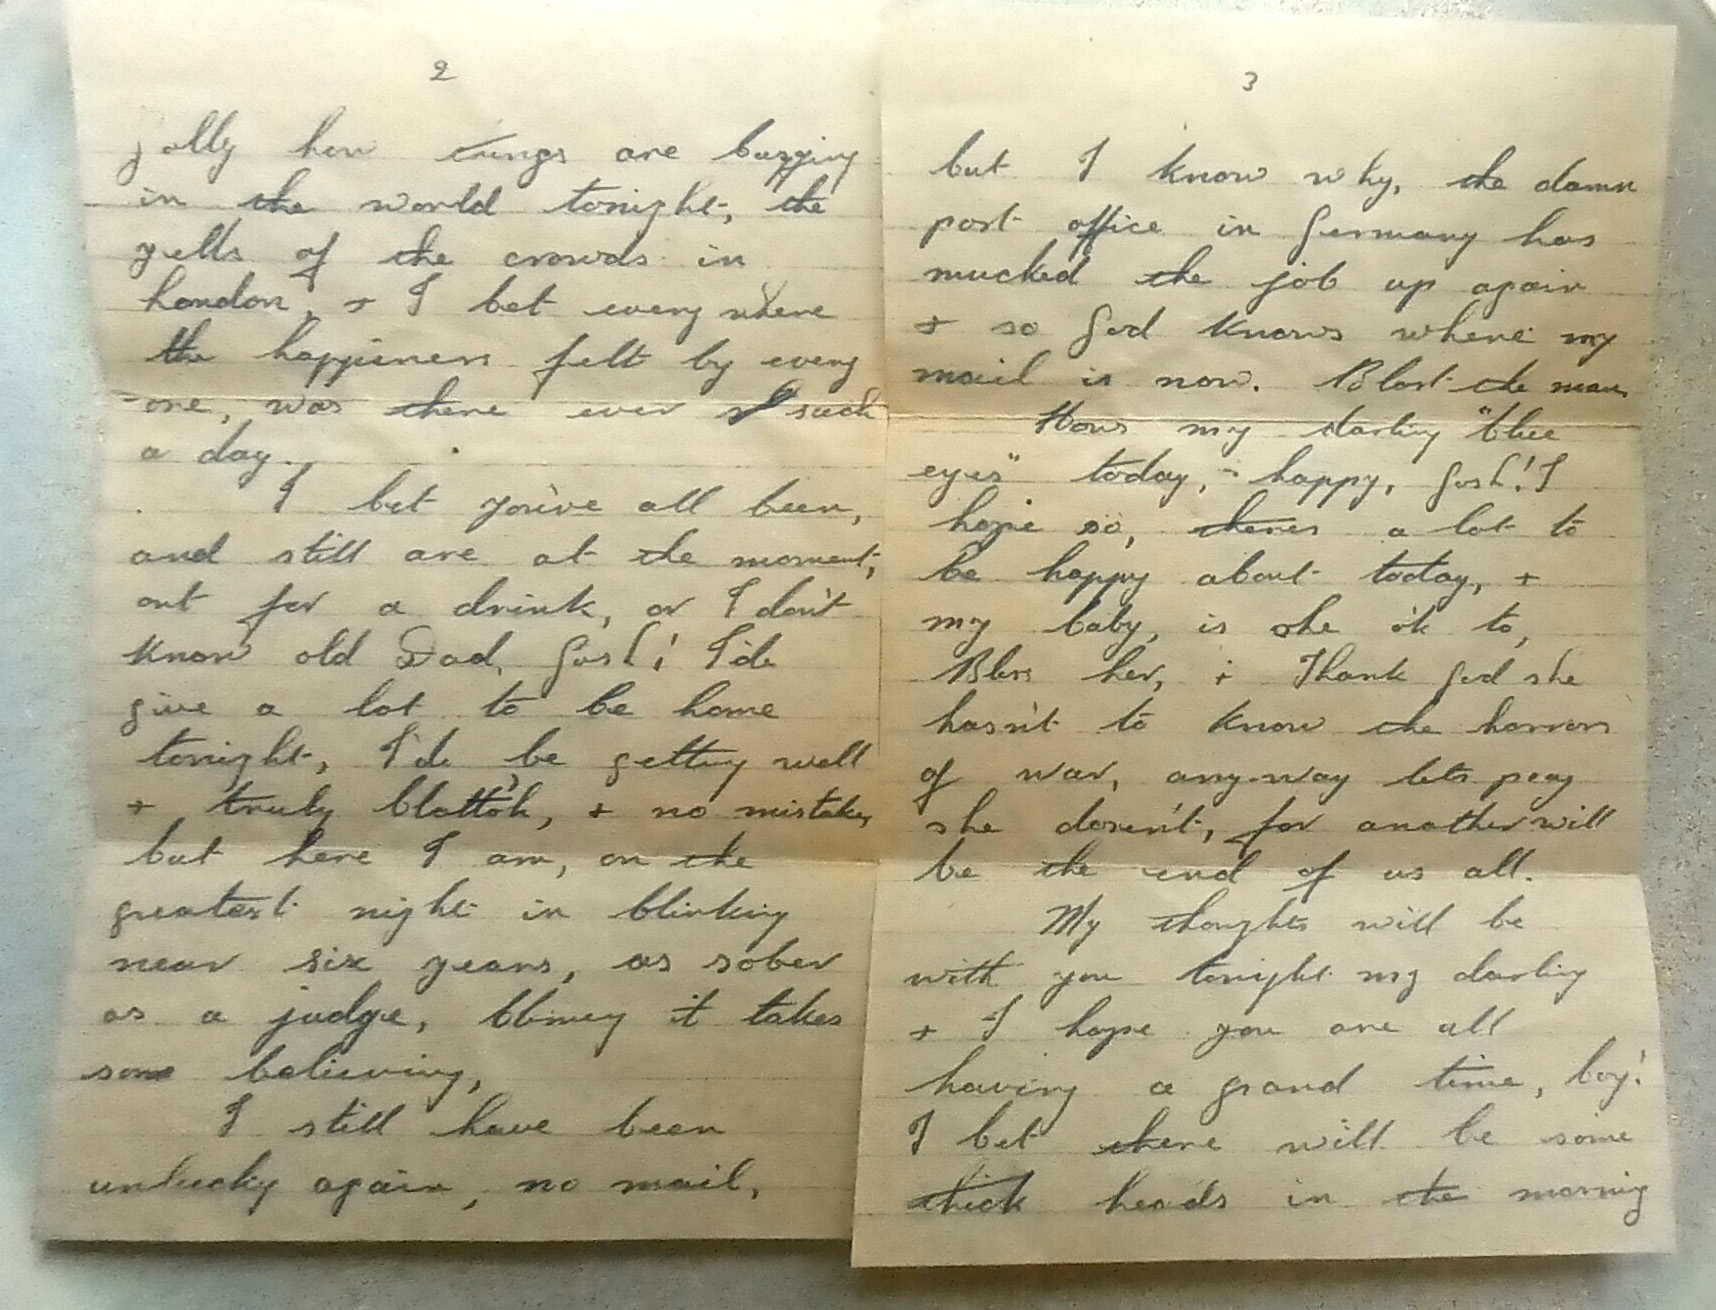 2
jolly how things are buzzing
in the world tonight, the
yells of the crowds in
London, + I bet everywhere
the happiness felt by every
-one, was there ever such
a day.
I bet you've all been,
and still are at the moment,
out for a drink, or I don't
know old Dad, Gosh! I'de
give a lot to be home
tonight, I'de be getting well
+ truly blotto'h, + no mistake,
but here I am, on the
greatest night in blinking
near six years, as sober
as a judge, blimey it takes
some believing,
I still have been
unlucky again, no mail,
3
but I know why, the damn
post office in Germany has
mucked the job up again
+ so God knows where my
mail is now. Blast the man
Hows my darling "blue
eyes" today, happy, Gosh! I
hope so, theres a lot to
be happy about today, +
my baby, is she ok to,
Bless her, + Thank God she
hasn't to know the horrors
of war, anyway lets pray
she doesn't, for another will
be the end of us all.
My thoughts will be
with you tonight my darling
+ I hope you are all
having a grand time, boy!
I bet there will be some
thick heads in the morning